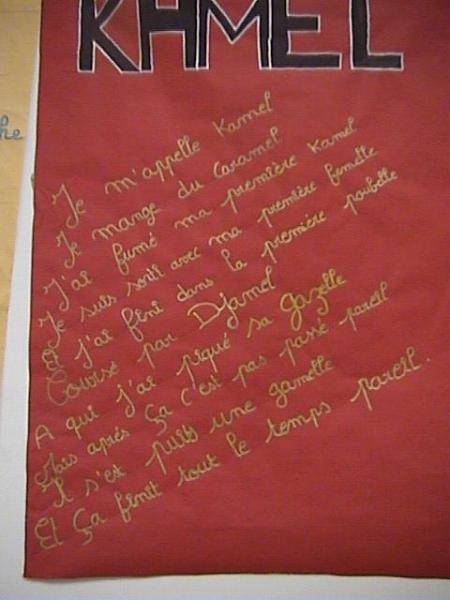 KAMEL
he
Je m'appelle Kamel
Je mange du Caramel
J'ai fumé ma première Kamel
Je suis sorti avec ma première femelle
Et j'ai fini dans la première poubelle
Coursé par Djamel
A qui j'ai piqué sa gazelle
Mais après ça c'est pas passé pareil
Il s'est puits une gamelle
Et ça finit tout le temps pareil.